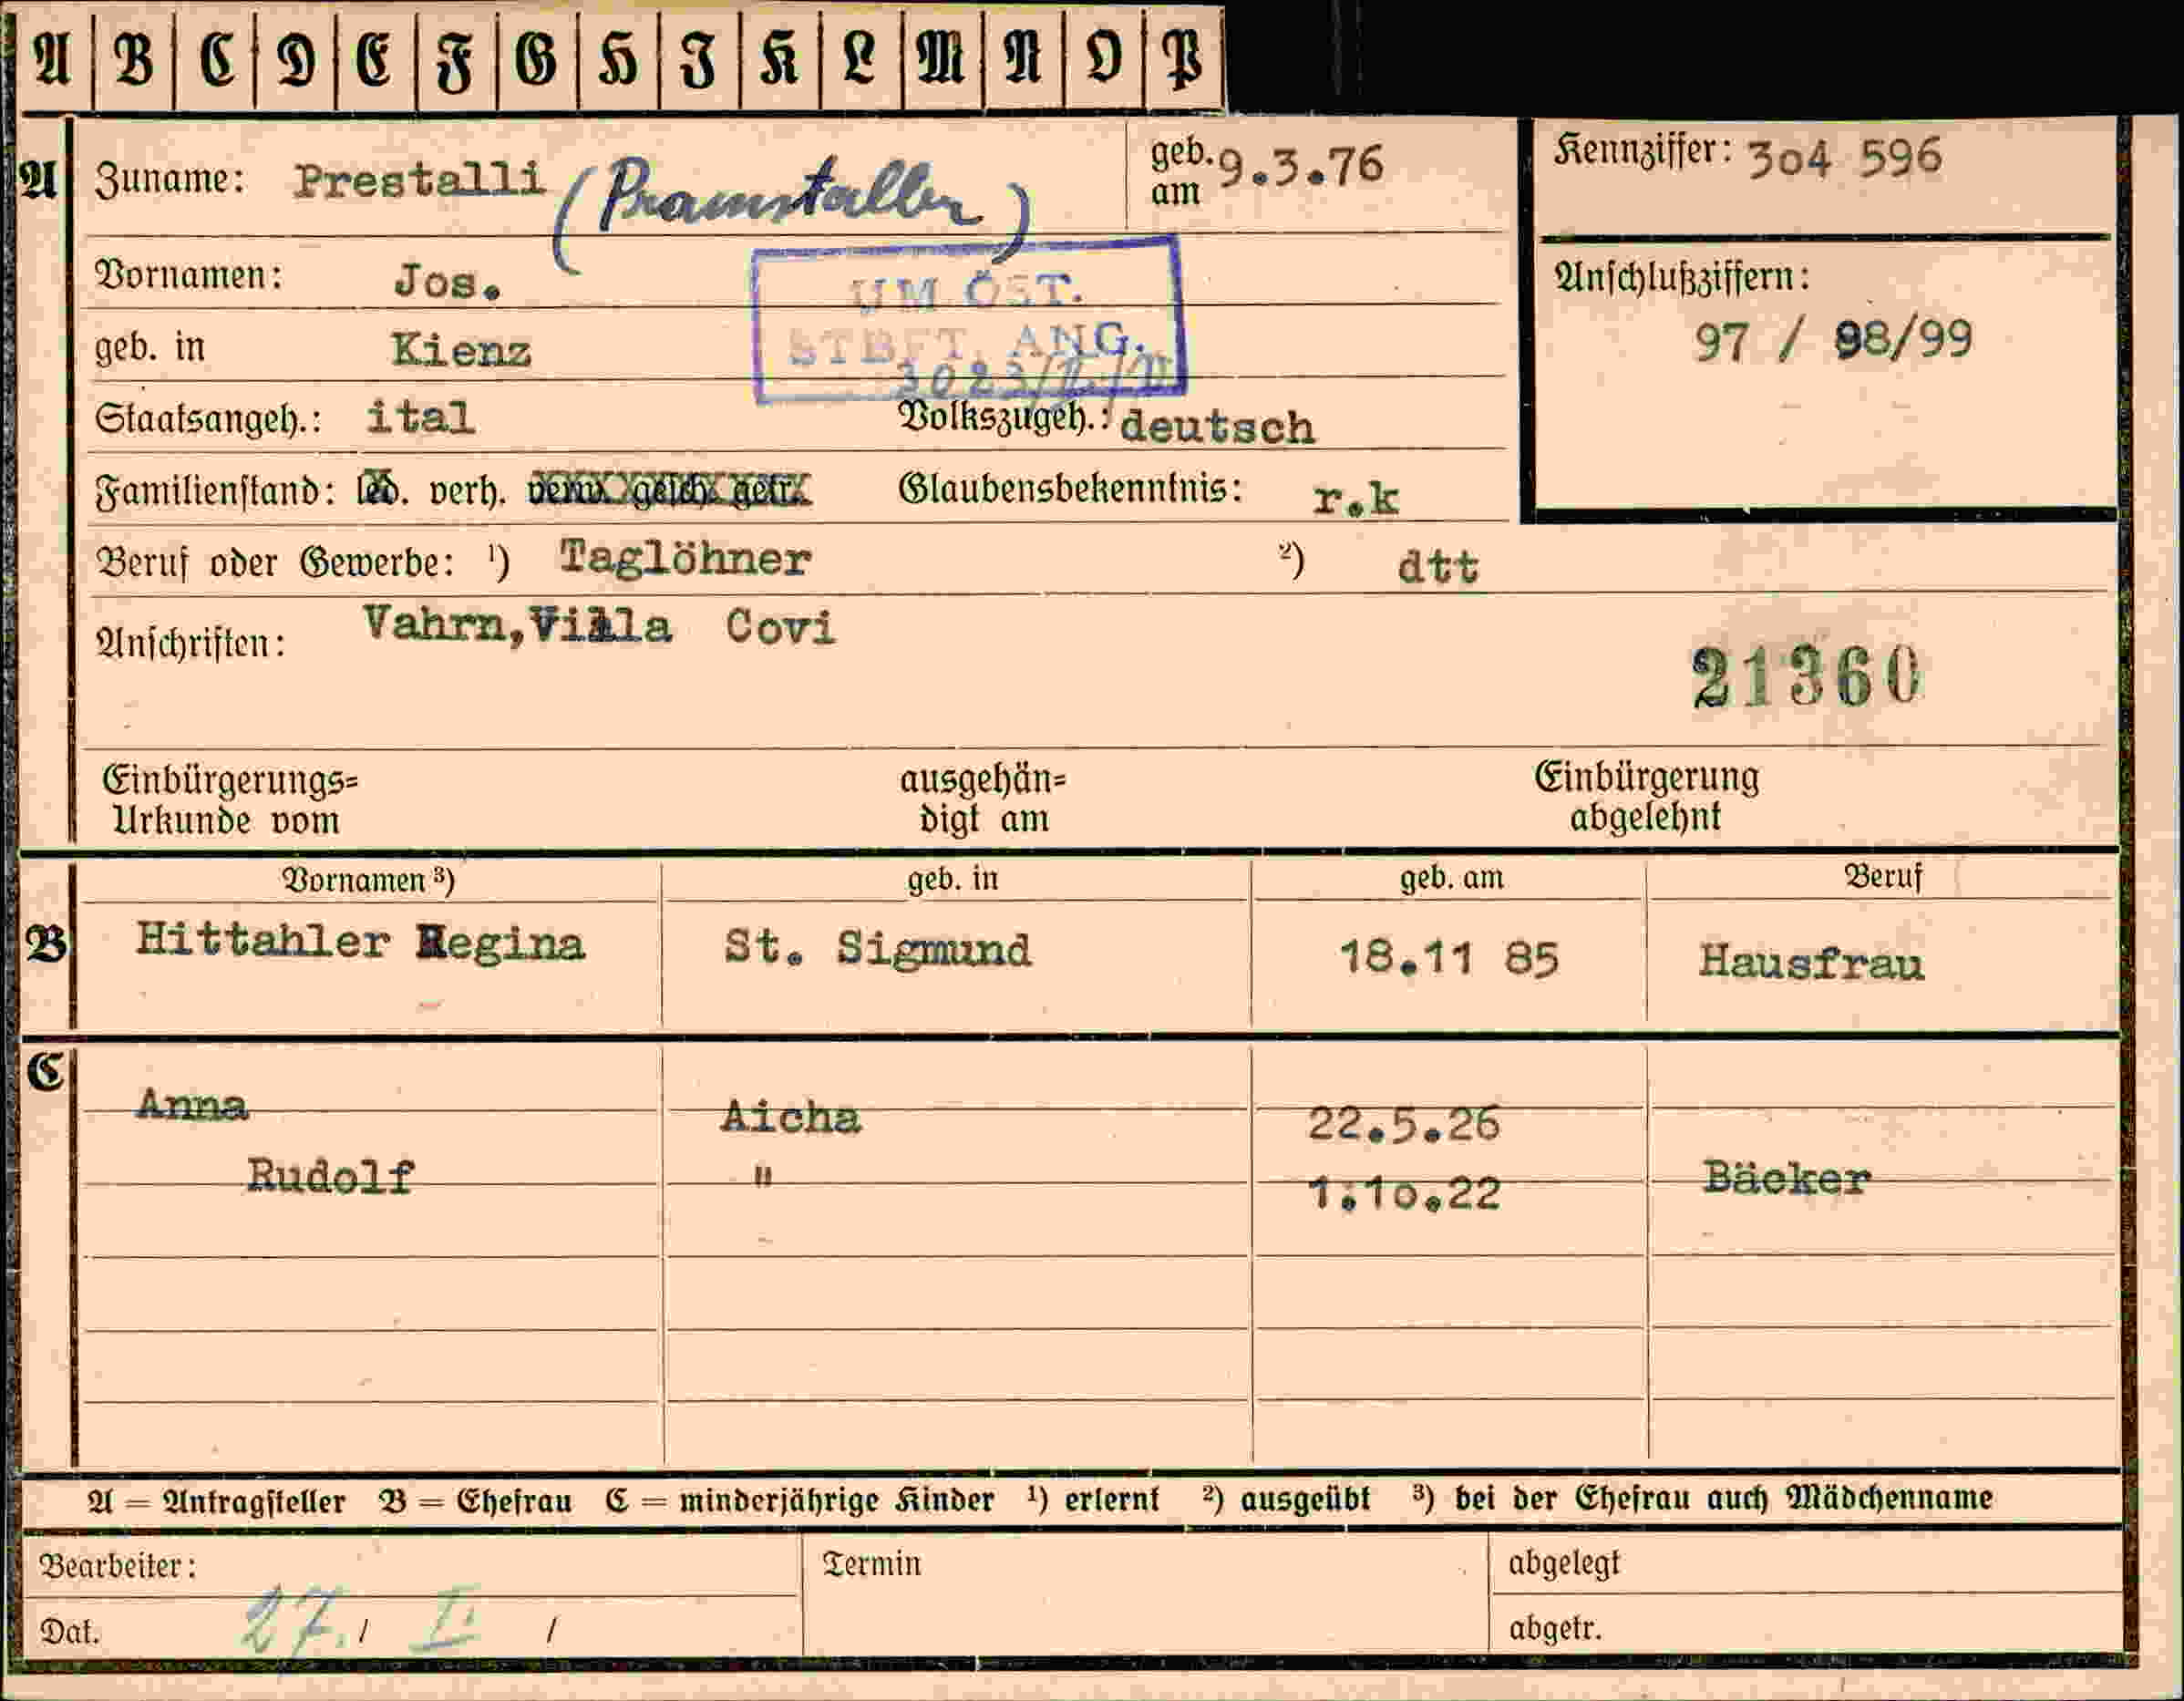 A B C D E F G H I K L M N O P
A Zuname: Prestalli (Pramstaller) geb. am 9.3.76 Kennziffer: 304 596
Vornamen: Jos.
UM ÖST.
STBFT. ANG.
Anschlußziffern:
97 / 98/99
geb. in Kienz
Staatsangeh.: ital Volkszugeh.: deutsch
Familienstand: led. verh. verw. gesch. getr. Glaubensbekenntnis: r.k
Beruf oder Gewerbe: ¹) Taglöhner ²) dtt
Anschriften: Vahrn,Villa Covi
21360
Einbürgerungs= ausgehän= Einbürgerung
Urkunde vom digt am abgelehnt
Vornamen ³) geb. in geb. am Beruf
B Hittahler Regina St. Sigmund 18.11 85 Hausfrau
C
Anna Aicha 22.5.26
Rudolf " 1.10.22 Bäcker
A = Antragsteller B = Ehefrau C = minderjährige Kinder ¹) erlernt ²) ausgeübt ³) bei der Ehefrau auch Mädchenname
Bearbeiter: Termin abgelegt
Dat. 27. / I. / abgetr.